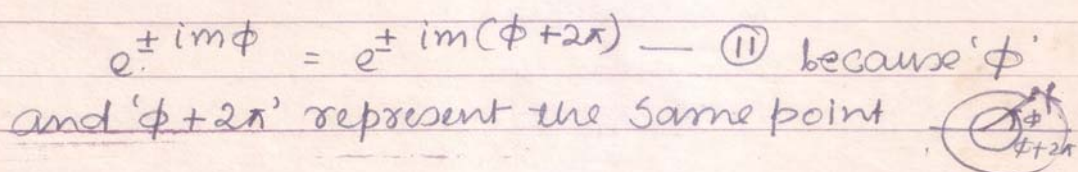 e^{± imφ} = e^{± im(φ+2π)} — ⑪ because 'φ'
and 'φ+2π' represent the same point
φ
φ+2π